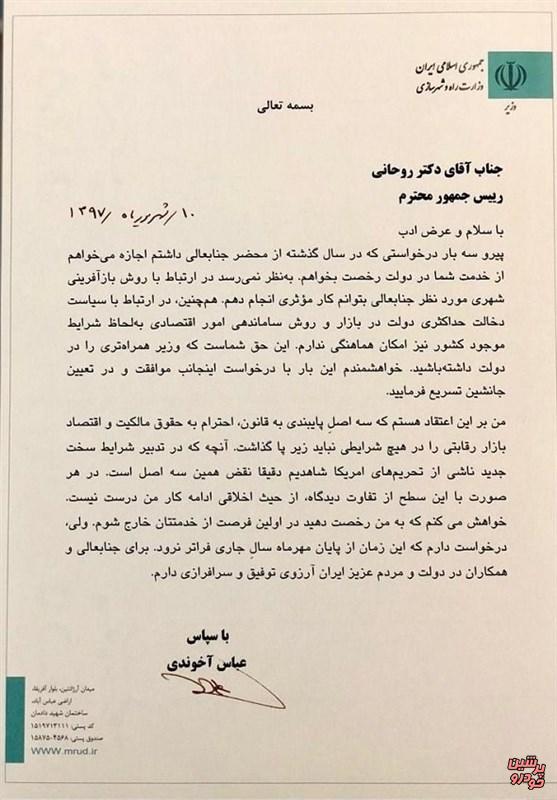 جمهوری اسلامی ایران
وزارت راه و شهرسازی
وزیر
بسمه تعالی
جناب آقای دکتر روحانی
رییس جمهور محترم
۱۰/شهریورماه/۱۳۹۷
با سلام و عرض ادب
پیرو سه بار درخواستی که در سال گذشته از محضر جنابعالی داشتم اجازه می‌خواهم
از خدمت شما در دولت رخصت بخواهم. به‌نظر نمی‌رسد در ارتباط با روش بازآفرینی
شهری مورد نظر جنابعالی بتوانم کار مؤثری انجام دهم. هم‌چنین، در ارتباط با سیاست
دخالت حداکثری دولت در بازار و روش ساماندهی امور اقتصادی به‌لحاظ شرایط
موجود کشور نیز امکان هماهنگی ندارم. این حق شماست که وزیر همراه‌تری را در
دولت داشته‌باشید. خواهشمندم این بار با درخواست اینجانب موافقت و در تعیین
جانشین تسریع فرمایید.
من بر این اعتقاد هستم که سه اصلِ پایبندی به قانون، احترام به حقوق مالکیت و اقتصاد
بازار رقابتی را در هیچ شرایطی نباید زیر پا گذاشت. آنچه که در تدبیر شرایط سخت
جدید ناشی از تحریم‌های امریکا شاهدیم دقیقا نقض همین سه اصل است. در هر
صورت با این سطح از تفاوت دیدگاه، از حیث اخلاقی ادامه کار من درست نیست.
خواهش می کنم که به من رخصت دهید در اولین فرصت از خدمتتان خارج شوم. ولی،
درخواست دارم که این زمان از پایان مهرماه سالِ جاری فراتر نرود. برای جنابعالی و
همکاران در دولت و مردم عزیز ایران آرزوی توفیق و سرافرازی دارم.
با سپاس
عباس آخوندی
میدان آرژانتین، بلوار آفریقا،
اراضی عباس آباد،
ساختمان شهید دادمان
کد پستی: ۱۵۱۹۷۱۳۱۱۱
صندوق پستی: ۱۵۸۷۵-۴۵۶۸
www.mrud.ir
پرشین
خودرو